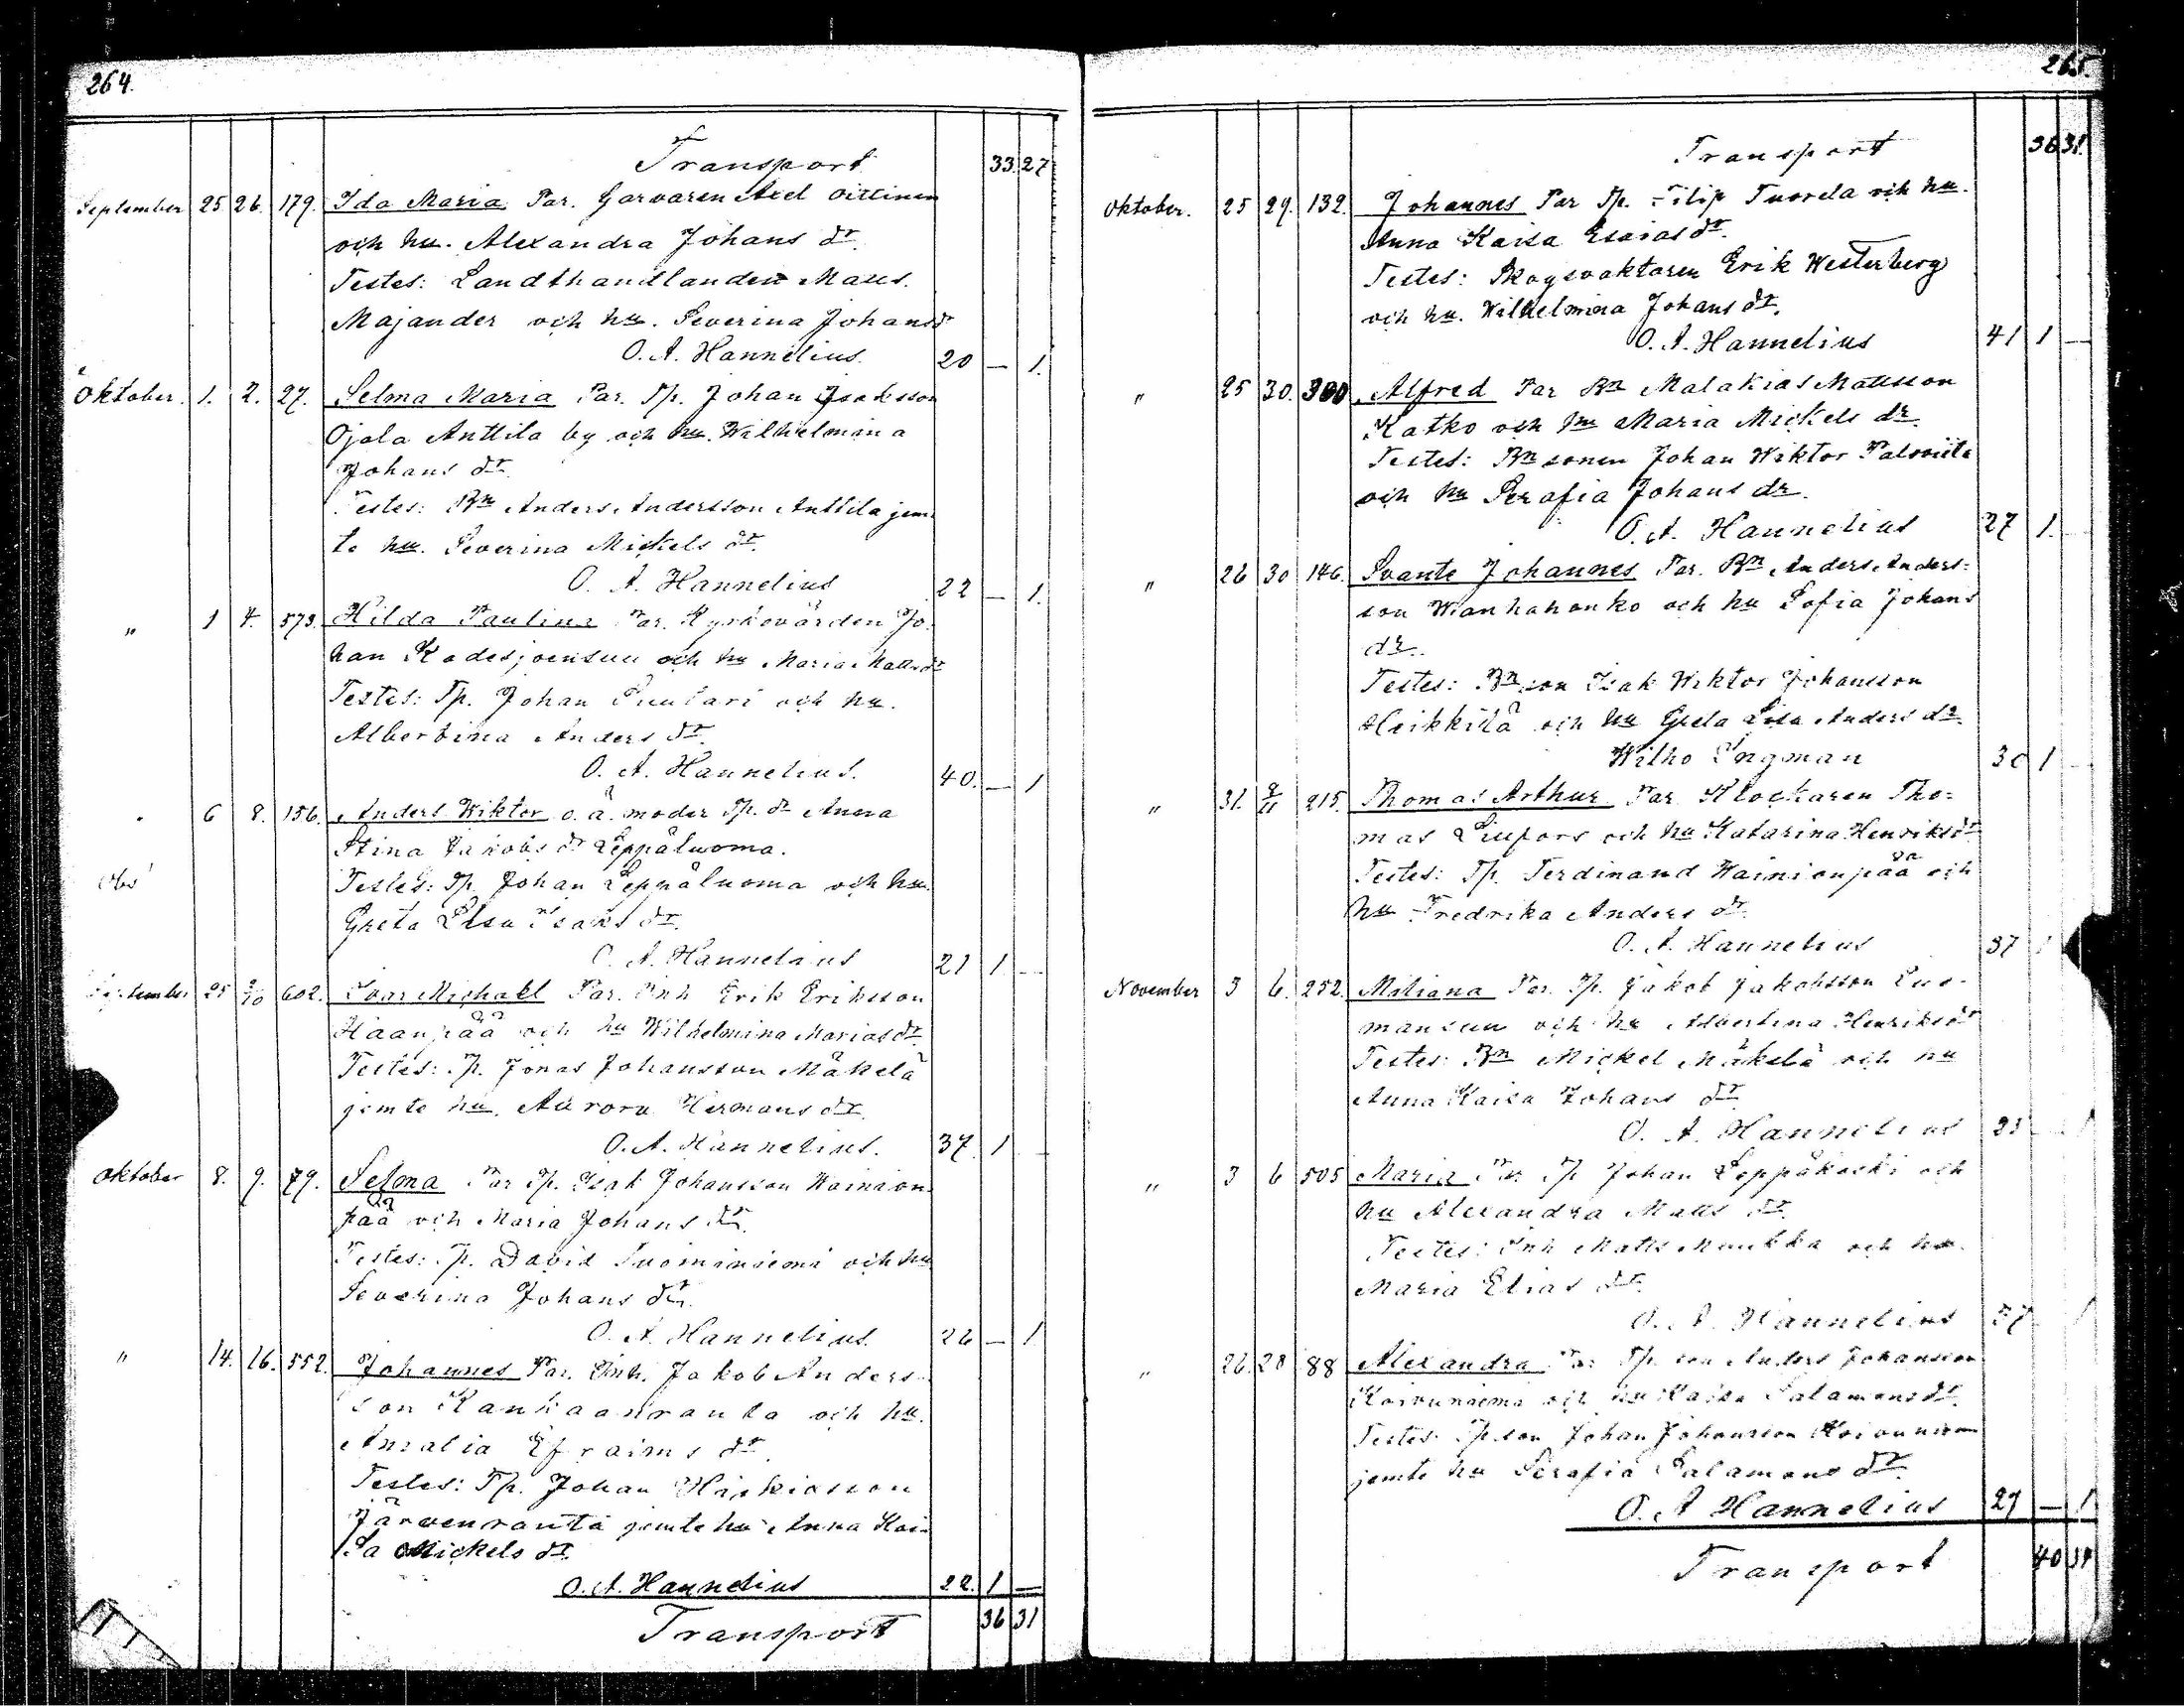 264.
Transport 33 27
September 25 26. 179. Ida Maria Par. Garvaren Axel Oittinen
och hu. Alexandra Johans dr.
Testes: Landthandlanden Matts.
Majander och hu. Severina Johans dr
O. A. Hannelius. 20 — 1.
Oktober. 1. 2. 27. Selma Maria Par. Tp. Johan Isaksson
Ojala Anttila by och hu. Wilhelmina
Johans dr.
Testes: Bn Anders Andersson Anttila jem
te hu. Severina Mickels dr.
O. A. Hannelius 22 — 1.
" 1 4. 573. Hilda Paulina Par. Kyrkovärden Jo-
han Kadesjoensuu och hu Maria Matts dr
Testes: Tp. Johan Puutari och hu.
Albertina Anders dr.
O. A. Hannelius. 40. — 1
" 6 8. 156. Anders Wiktor o. ä. moder Tp. dr Anna
Stina Jakobs dr Leppäluoma.
Obs! Testes: Tp. Johan Leppäluoma och hu.
Greta Lisa Isaks dr.
O. A. Hannelius 21 1 —
September 25 2/10 602. Ivar Michael Par. Inh Erik Eriksson
Haanpää och hu Wilhelmina Marias dr.
Testes: Tp. Jonas Johansson Mäkelä
jemte hu. Aurora Hermans dr.
O. A. Hannelius. 37. 1 —
Oktober 8. 9. 79. Selma Par Tp. Isak Johansson Wainion
pää och Maria Johans dr.
Testes: Tp. David Suominiemi och hu
Severina Johans dr.
O. A. Hannelius. 26 — 1
" 14. 16. 552. Johannes Par. Inh. Jakob Anders-
son Kankaanranta och hu.
Amalia Efraims dr.
Testes: Tp. Johan Hiskiasson
Järvenranta jemte hu Anna Kai-
sa Mickels dr.
O. A. Hannelius 22. 1 —
Transport 36 31
265.
Transport 36 31.
Oktober. 25 29. 132. Johannes Par Tp. Filip Tuorela och hu.
Anna Kaisa Esaias dr.
Testes: Skogsvaktaren Erik Westerberg
och hu. Wilhelmina Johans dr.
O. A. Hannelius 41 1 —
" 25 30. 300 Alfred Par Bn Malakias Mattsson
Katko och hu Maria Mickels dr.
Testes: Bn sonen Johan Wiktor Paloviita
och hu Serafia Johans dr.
O. A. Hannelius 27 1. —
" 26 30 146. Svante Johannes Par. Bn Anders Anders-
son Wanhahonko och hu Sofia Johans
dr.
Testes: Bn son Isak Wiktor Johansson
Heikkilä och hu Greta Lisa Anders dr.
Wilho Ingman 30 1 —
" 31. 2/11 215. Thomas Arthur Par. Klockaren Tho-
mas Liupors och hu Katarina Henriks dr
Testes: Tp. Ferdinand Wainionpää och
hu Fredrika Anders dr.
O. A. Hannelius 37 1
November 3 6. 252. Miliana Par. Tp. Jakob Jakobsson Luo-
mansuu och hu Albertina Henriks dr
Testes: Bn Mickel Mäkelä och hu
Anna Kaisa Johans dr.
O. A. Hannelius 25 — 1
" 3 6 505 Maria Par Tp Johan Leppäkoski och
hu Alexandra Matts dr.
Testes: Inh Matts Muukka och hu.
Maria Elias dr.
O. A. Hannelius 37 1
" 26. 28 88 Alexandra Par Tp. son Anders Johansson
Koivuniemi och hu Kaisa Salamons dr.
Testes: Tp. son Johan Johansson Koivuniemi
jemte hu Serafia Salamons dr.
O. A Hannelius 27 — 1
Transport 40 34